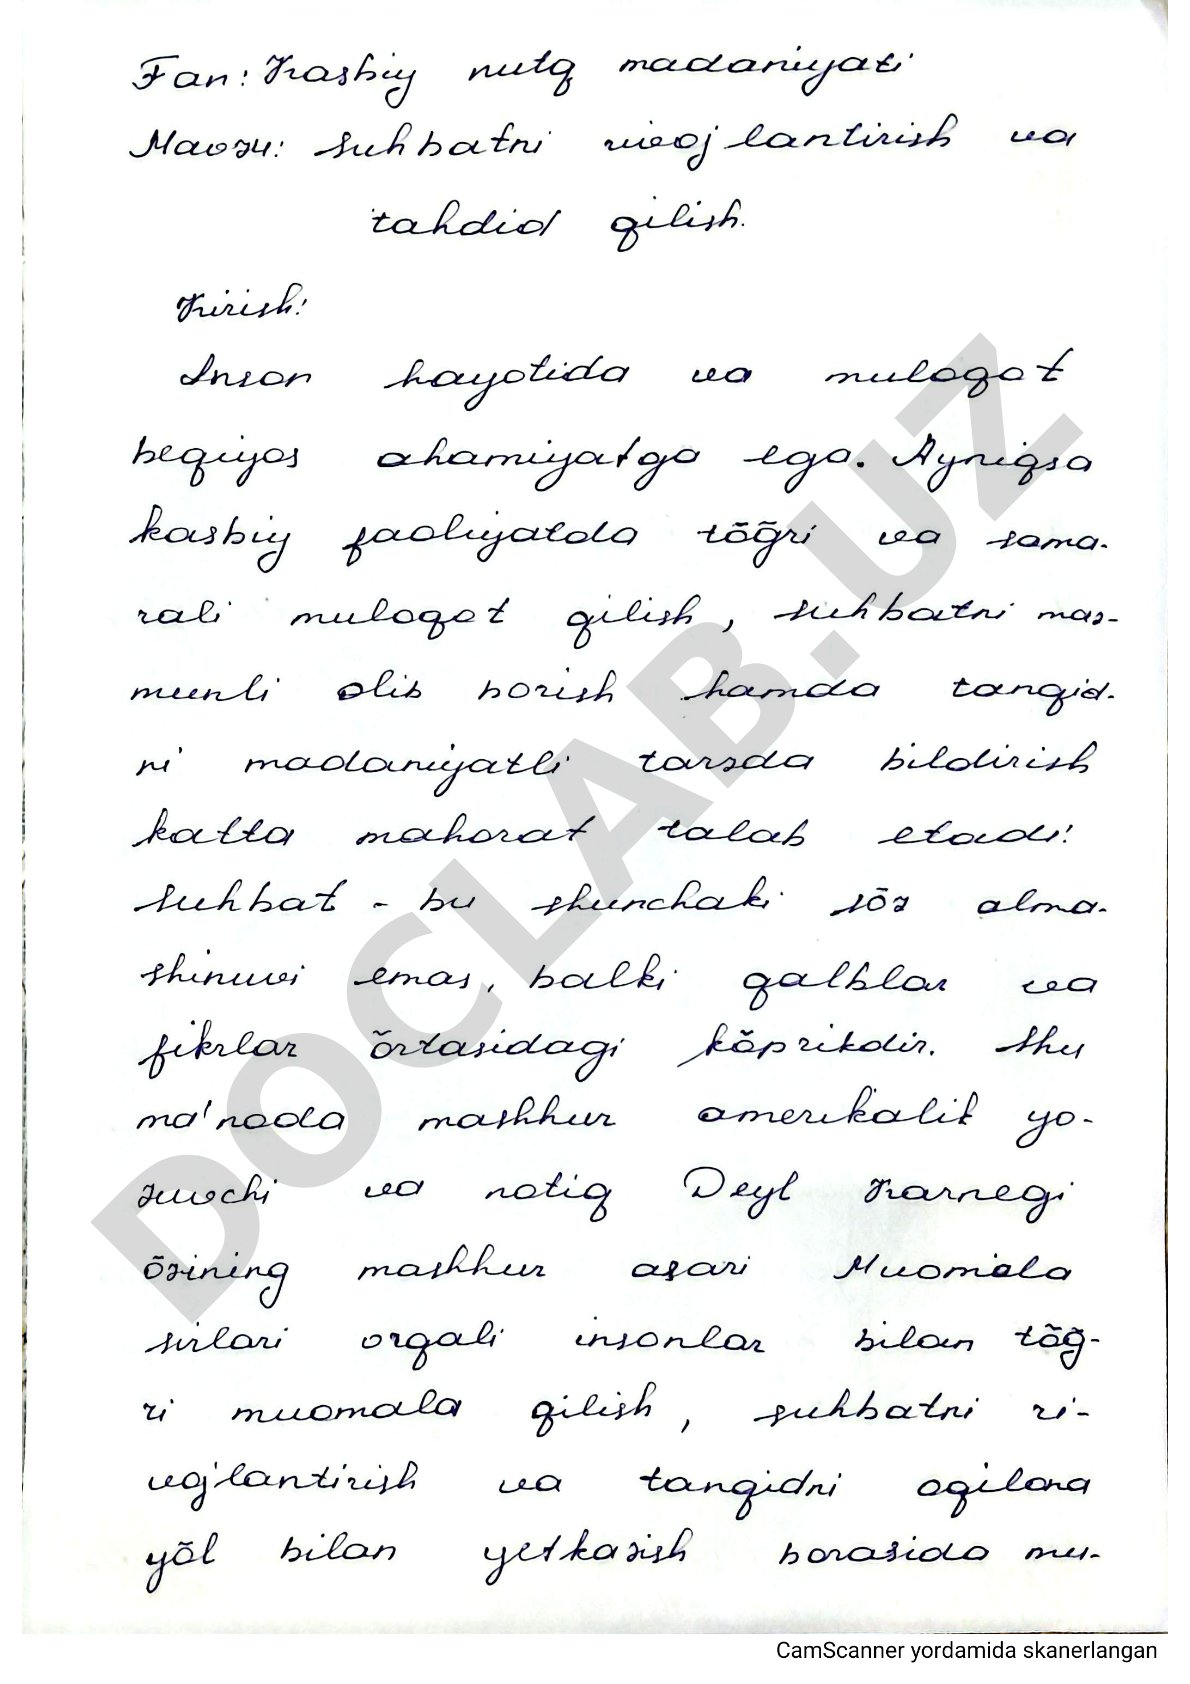 Fan: Kasbiy nutq madaniyati
Mavzu: Suhbatni rivojlantirish va
tahdid qilish.
Kirish:
Inson hayotida va muloqot
beqiyos ahamiyatga ega. Ayniqsa
kasbiy faoliyatda tõg̃ri va sama-
rali muloqot qilish, suhbatni maz-
munli olib borish hamda tanqid-
ni madaniyatli tarzda bildirish
katta mahorat talab etadi!
Suhbat - bu shunchaki sõz alma-
shinuvi emas, balki qalblar va
fikrlar õrtasidagi kõprikdir. Shu
ma'noda mashhur amerikalik yo-
zuvchi va notiq Deyl Karnegi
õzining mashhur asari Muomala
sirlari orqali insonlar bilan tõg̃-
ri muomala qilish, suhbatni ri-
vojlantirish va tanqidni oqilona
yõl bilan yetkazish borasida mu-
DOCLAB.UZ
CamScanner yordamida skanerlangan